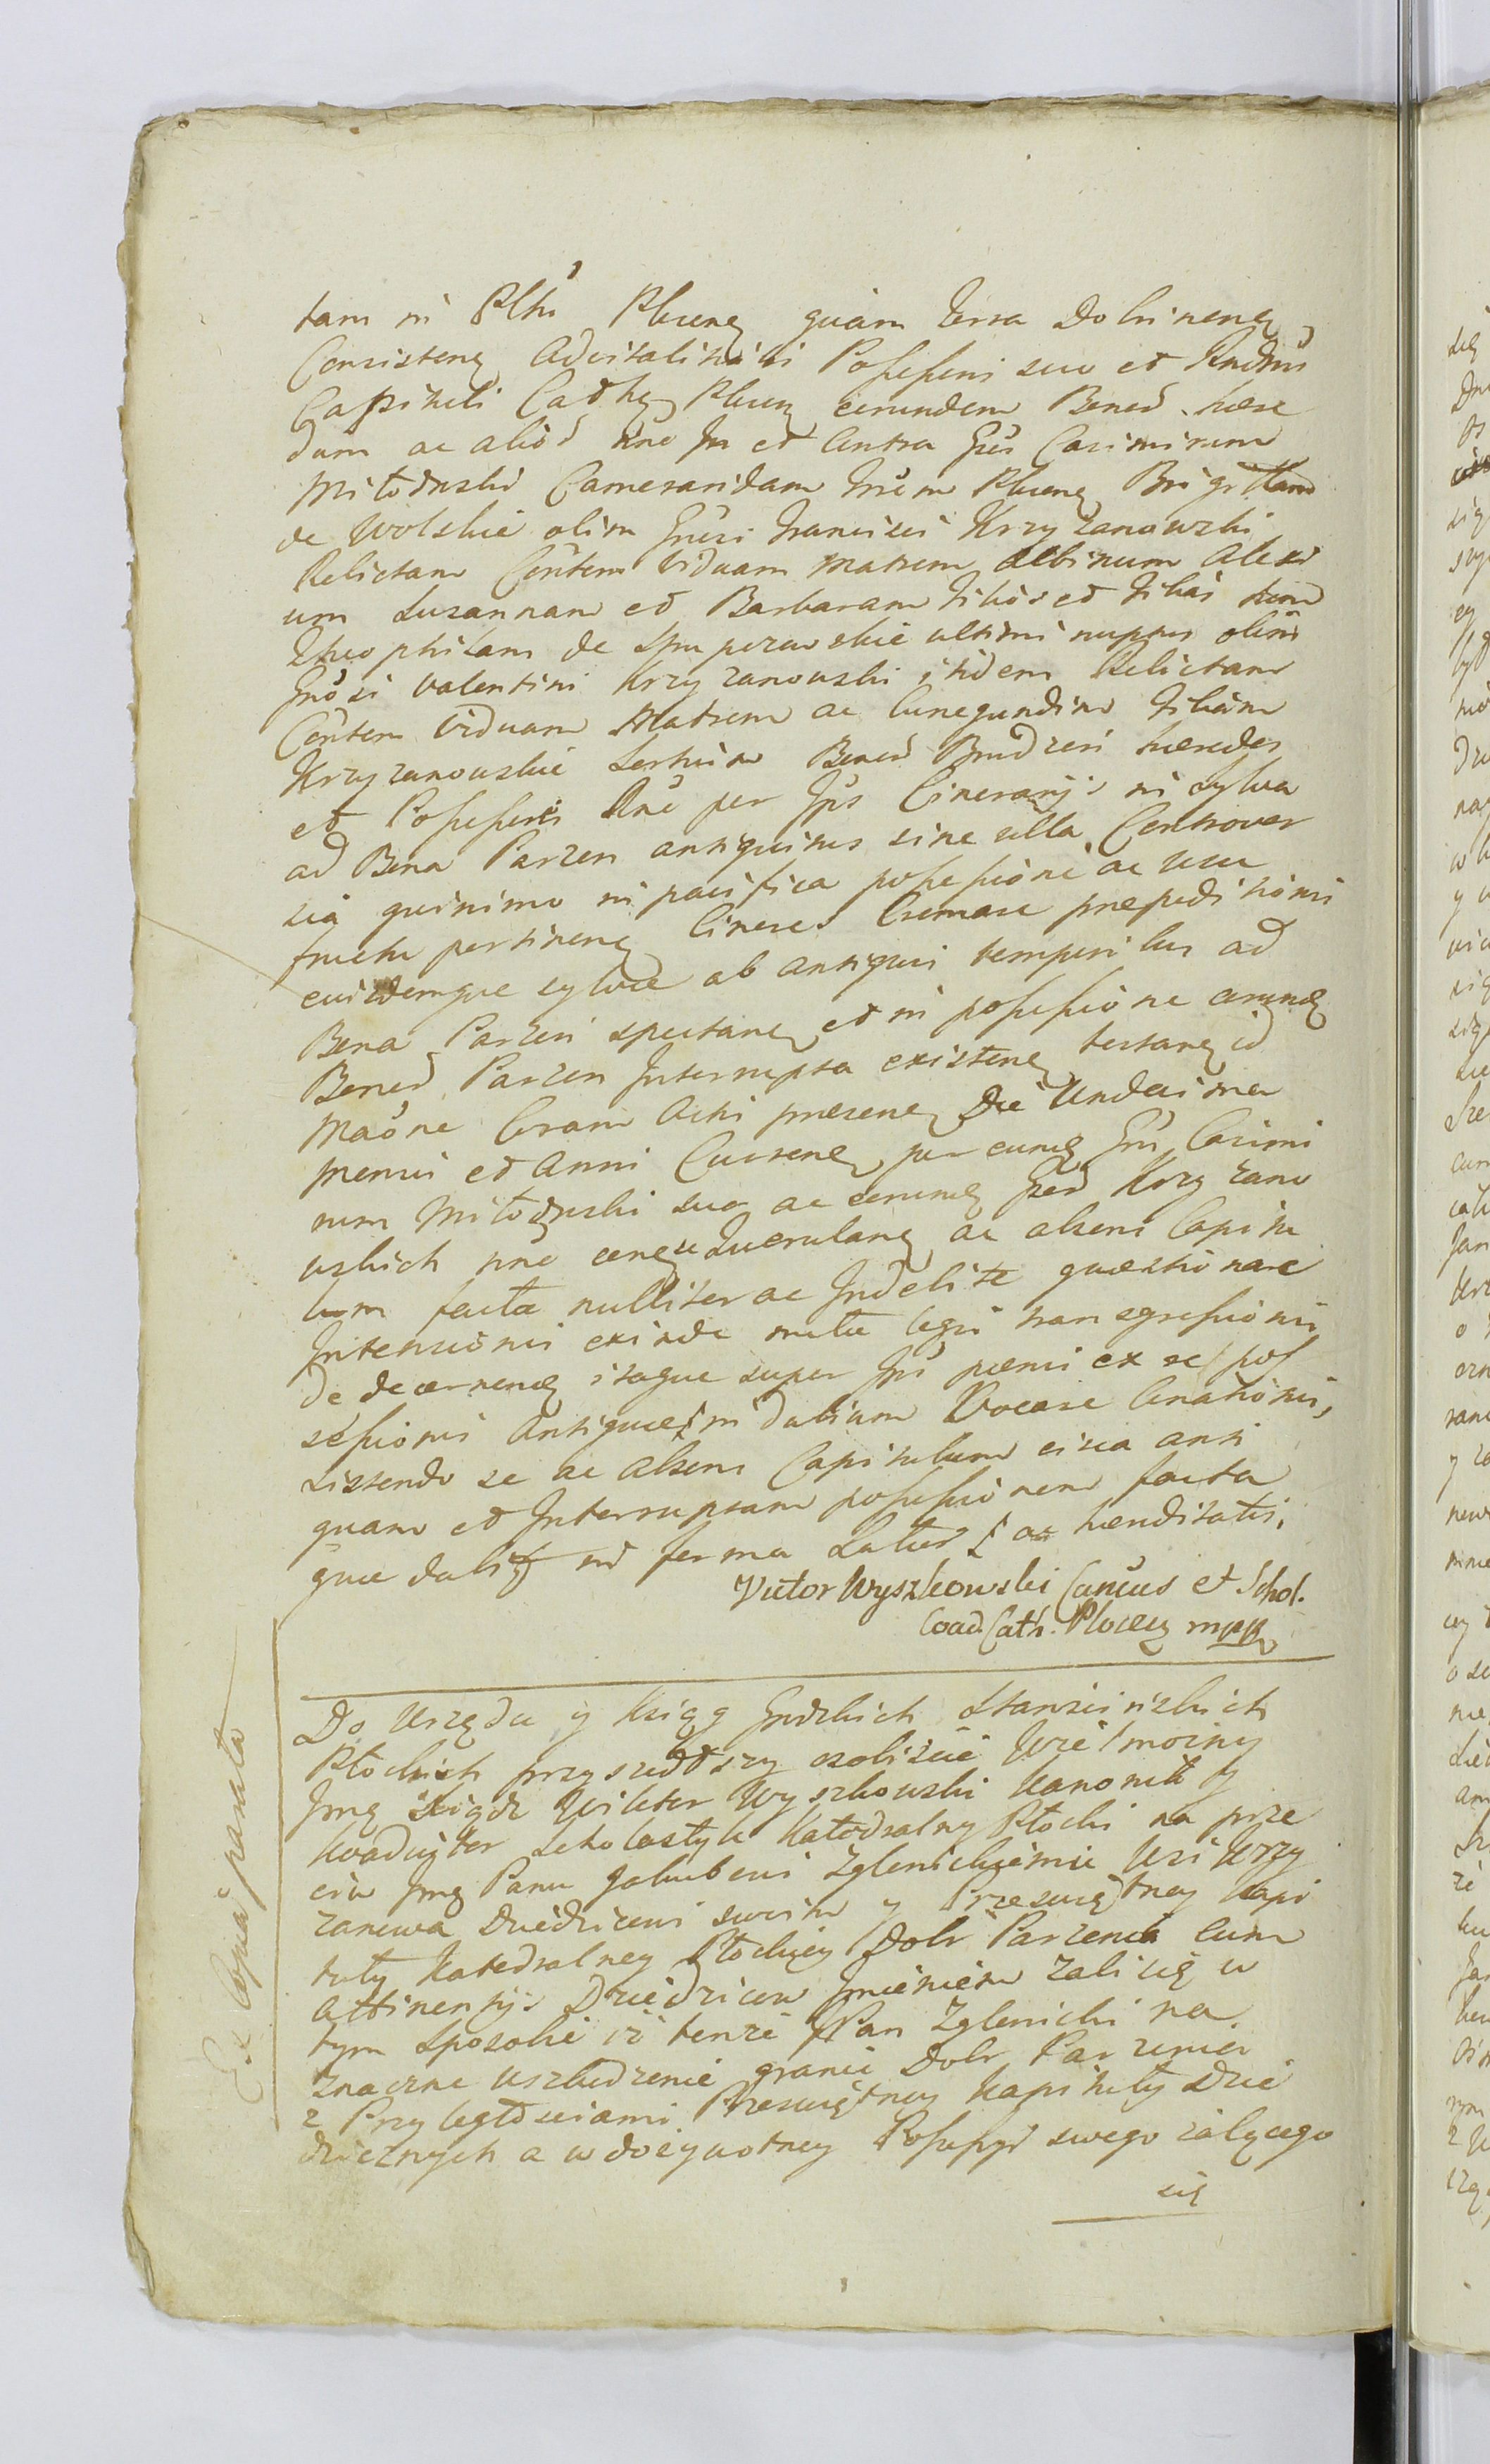 tam in Pltu Plocen quam Terra Dobrinen
Consisten Advitalitatis Possessoris suo et Rndmi
Capituli Cath Plocen eorundem Bonor. hære
dum ac alior nne in et contra Gsos Casimirum
Młodzski Cameraridam Trum Plocen Brigittam
de Wolskie olim Gnosi Francisci Krzyzanowski
Relictam Contem viduam matrem Albinum Alexi
um Susannam et Barbaram filios et filias tum
Theophilam de ultimi nuptus olim
Gnosi Valentini Krzyzanowski itidem Relictam
Contem viduam Matrem ac Cunegundim filiam
Krzyzanowskie Sortium Bonor Brudzeń hæredes
et Possessores nne per Ips Cinerarijs in sylva
ad Bona Parzen antiquitus sine ulla Controver
sia quinimo in pacifica possessione ac usu
fructu pertinen Cineres Cremare præpeditionis
eiusdemque sylvæ ab antiquis temporibus ad
Bona Parzen spectan et in possessione eorund
Bonor Parzen Interrupta existen testan id
maōne Coram Actis præsen Die Undecima
mensis et anni Curren per eund Gsm Casimi
rum Młodzski suo ac eorund Gsor Krzyzano
wskich nne cenque Querulan ac alsens Capitu
lum facta nulliter ac Indebite quæstionare
Intensionis exinde metu legis transgressionis
de decernend itaque super Ips pœnis ex se pos
sessionis Antiquæ in dubium Vocare Conationis,
sistendo se ac alsens Capitulum circa anti
quam et Interruptam possessionem facta
que dabit in forma Latius ac hæreditatis.
Victor Wyszkowski Canćus et Schol.
Coad. Cath. Plocen mpp
Ex Copia parata
Do Urzędu y Xiąg Grodzkich Starościńskich
Płockich przyszedłszy osobiscie Wielmożny
Jmę Xiądz Wiktor Wyszkowski Kanonik y
Koadiutor Scholastyk Katedralny Płocki na prze
ciw Jmę Panu Jakubowi Zglenickiemu Wsi Krzy
zanowa Dziedzicowi swoim y Przeświętney Kapi
tuły Katedralney Płockiey Dobr Parzenia cum
attinentijs Dziedzicow Imieniem zali się w
tym sposobie iż tenże Pan Zglenicki na
znaczne uszkodzenie granic Dobr Parzenia
z Przyległosciami Przeświętney Kapituły Dzie
dzicznych a w dożywotney Possessyi swego żalącego
się